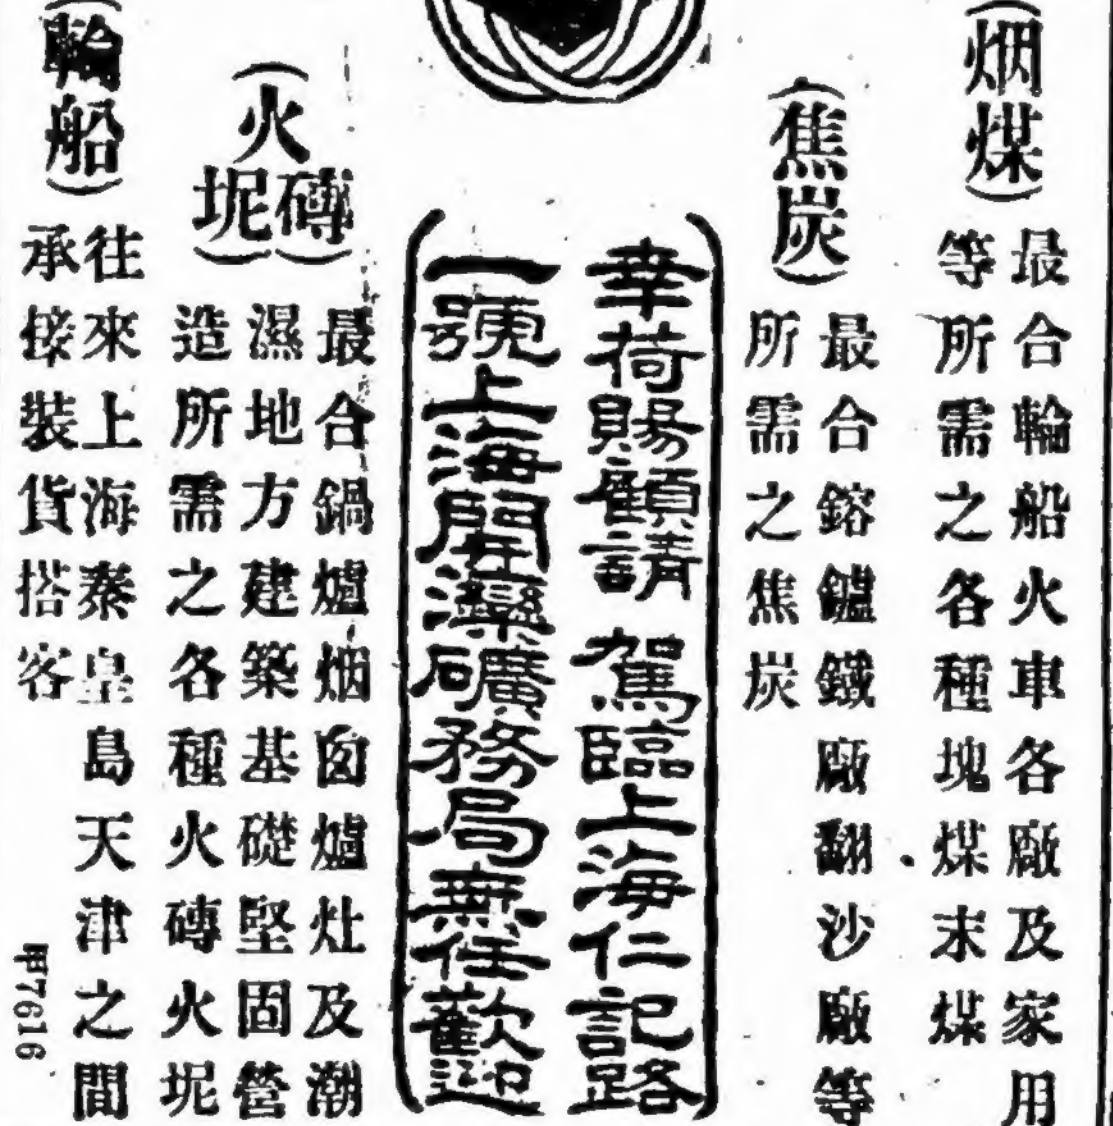 (烟煤)
最合輪船火車各廠及家用
等所需之各種塊煤末煤
(焦炭)
最合鎔鑪鐵廠翻沙廠等
所需之焦炭
幸荷賜顧請 駕臨上海仁記路
一號上海開灤礦務局無任歡迎
(火磚)
(火坭)
最合鍋爐烟囱爐灶及潮
濕地方建築基礎堅固營
造所需之各種火磚火坭
(輪船)
往來上海秦皇島天津之間
承接裝貨搭客
甲7616